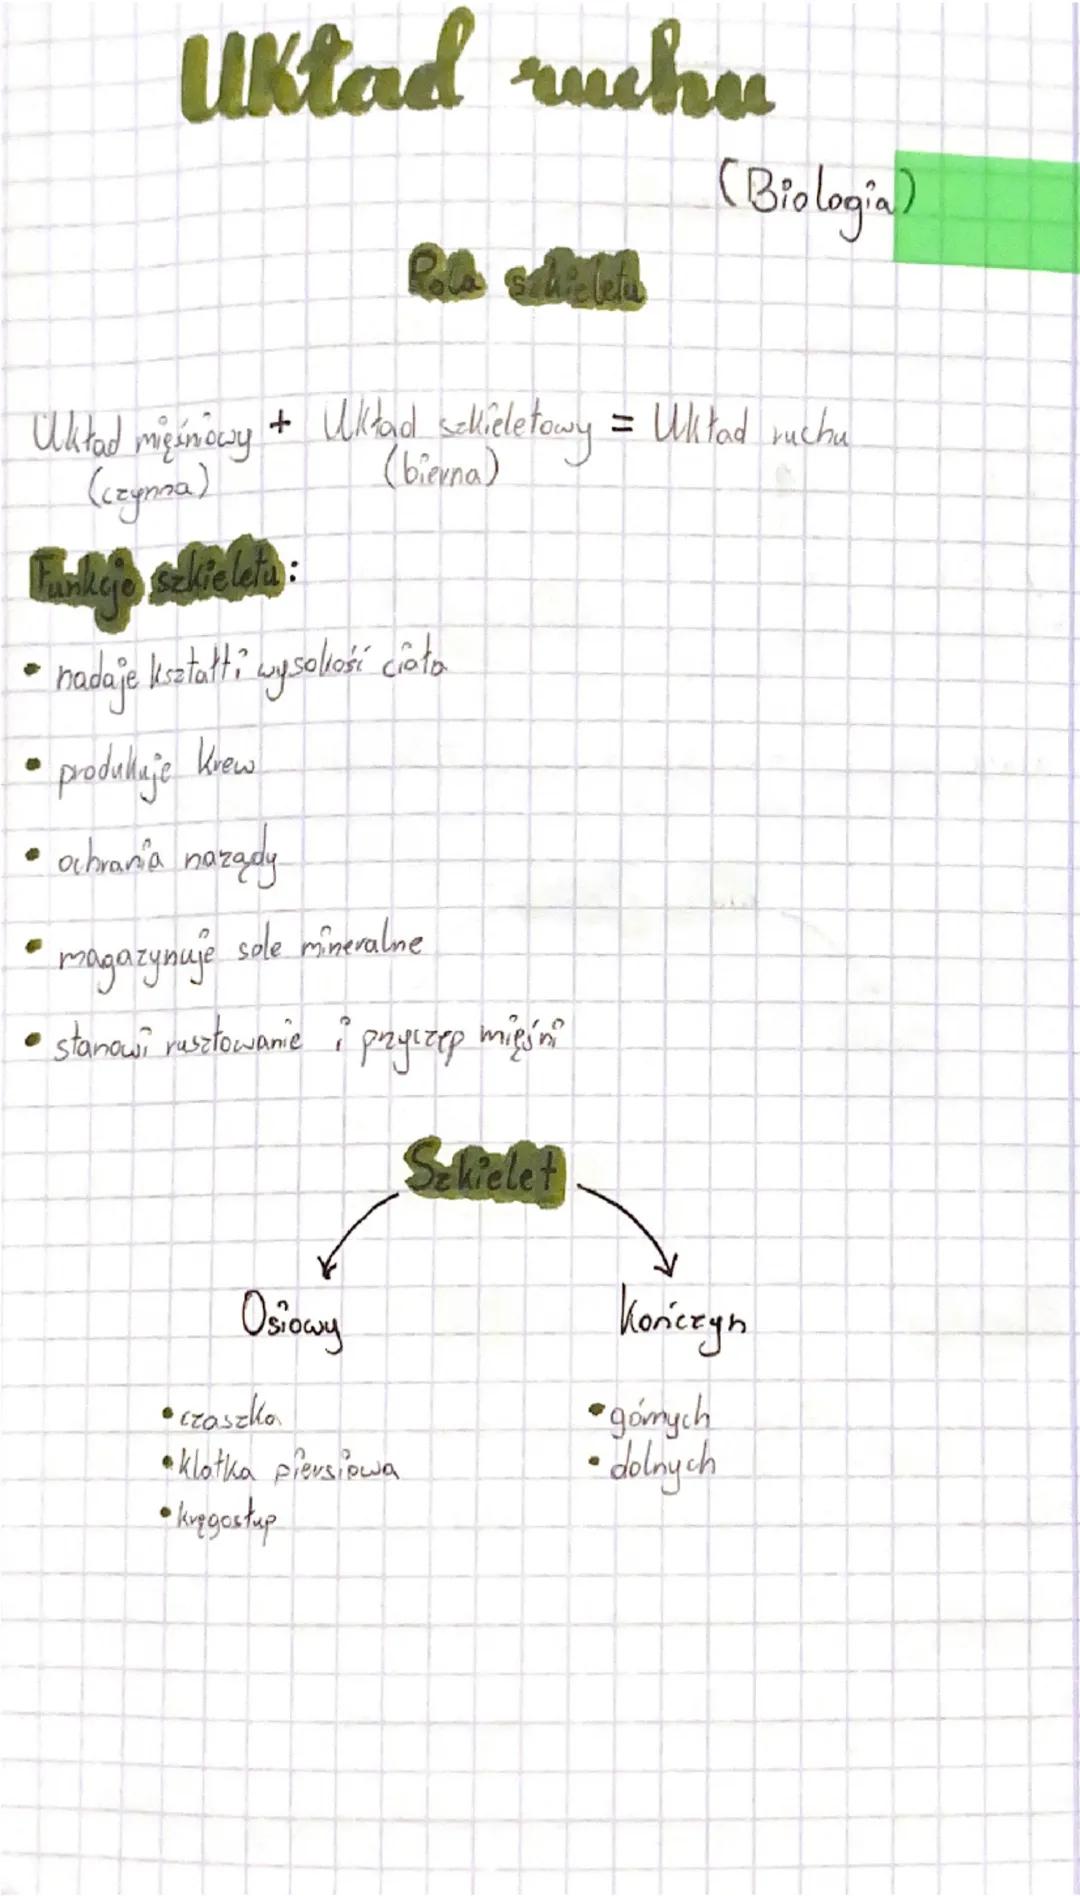 Układ ruchu
(Biologia)
Rola szkieletu
Układ mięśniowy + Układ szkieletowy = Układ ruchu
(czynna) (bierna)
Funkcje szkieletu:
• nadaje kształt i wysokość ciała
• produkuje krew
• ochrania narządy
• magazynuje sole mineralne
• stanowi rusztowanie i przyczep mięśni
Szkielet
Osiowy Kończyn
• czaszka • górnych
• klatka piersiowa • dolnych
• kręgosłup